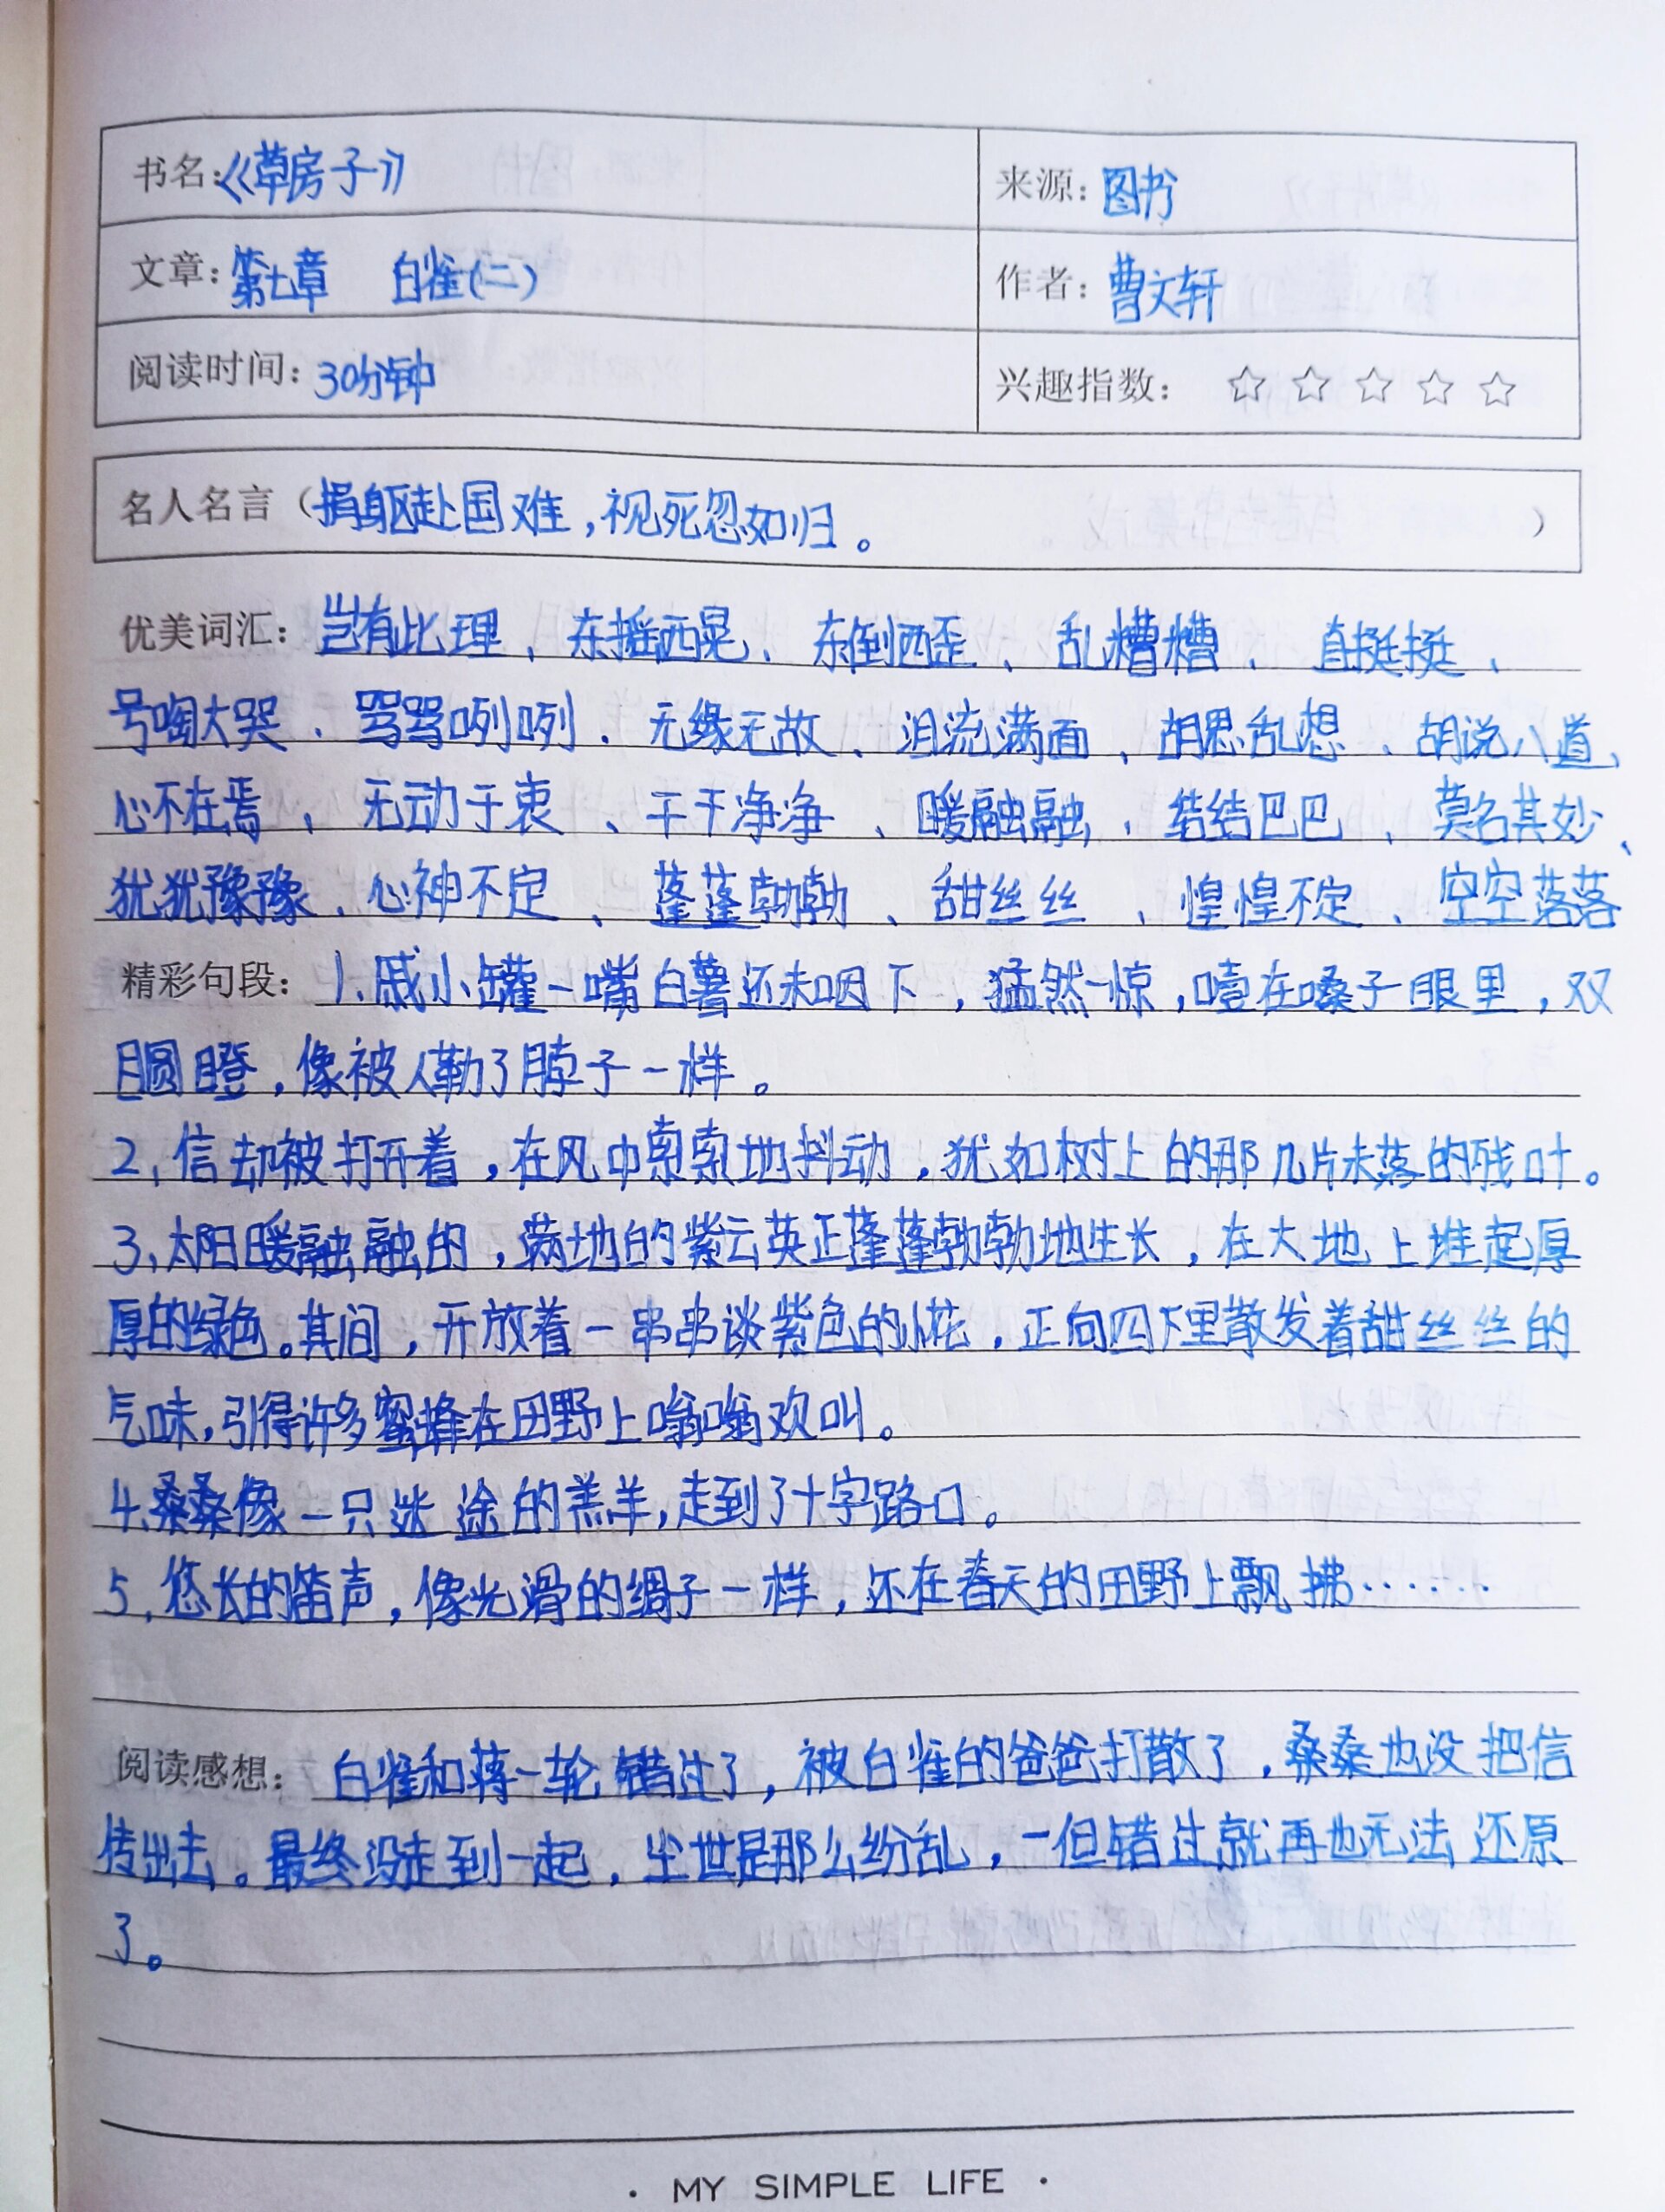 书名:《草房子》 来源: 图书
文章: 第七章 白雀(二) 作者: 曹文轩
阅读时间: 30分钟 兴趣指数: ☆ ☆ ☆ ☆ ☆
名人名言(捐躯赴国难,视死忽如归。)
优美词汇: 岂有此理、东摇西晃、东倒西歪、乱糟糟、直挺挺、
号啕大哭、骂骂咧咧、无缘无故、泪流满面、胡思乱想、胡说八道、
心不在焉、无动于衷、干干净净、暖融融、结结巴巴、莫名其妙、
犹犹豫豫、心神不定、蓬蓬勃勃、甜丝丝、惶惶不定、空空落落
精彩句段: 1、戚小罐一嘴白薯还未咽下,猛然一惊,噎在嗓子眼里,双
目圆瞪,像被人勒了脖子一样。
2、信却被打开着,在风中索索地抖动,犹如树上的那几片未落的残叶。
3、太阳暖融融的,满地的紫云英正蓬蓬勃勃地生长,在大地上堆起厚
厚的绿色。其间,开放着一串串淡紫色的小花,正向四下里散发着甜丝丝的
气味,引得许多蜜蜂在田野上嗡嗡欢叫。
4、桑桑像一只迷途的羔羊,走到了十字路口。
5、悠长的笛声,像光滑的绸子一样,还在春天的田野上飘拂……
阅读感想: 白雀和蒋一轮错过了,被白雀的爸爸打散了,桑桑也没把信
传出去。最终没走到一起,尘世是那么纷乱,一但错过就再也无法还原
了。
· MY SIMPLE LIFE ·